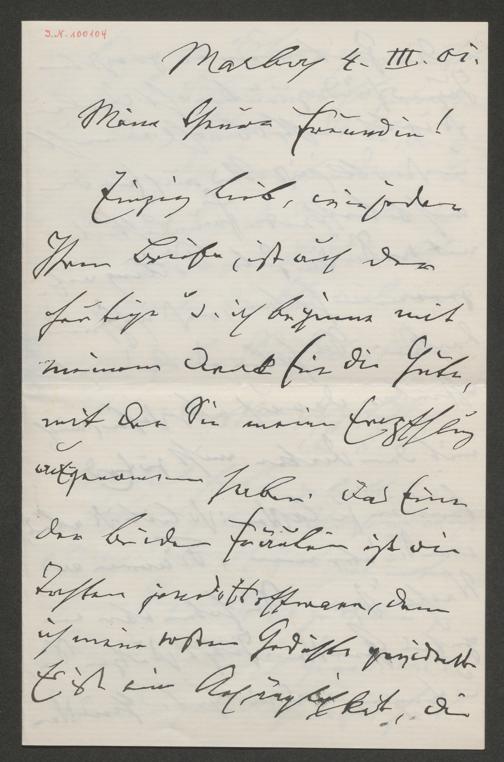 I.N. 100104
Marburg 4. III. 01.
Meine theure Freundin!
Einzig lieb, wie jeder
Ihrer Briefe, ist auch der
heutige u. ich beginne mit
meinem Dank für die Güte,
mit der Sie meine Empfehlung
aufgenommen haben. Das Eine
der beiden Fräulein ist die
Tochter jenes Hoffmann, dem
ich meine ersten Gedichte
Es ist eine Anhänglichkeit, die